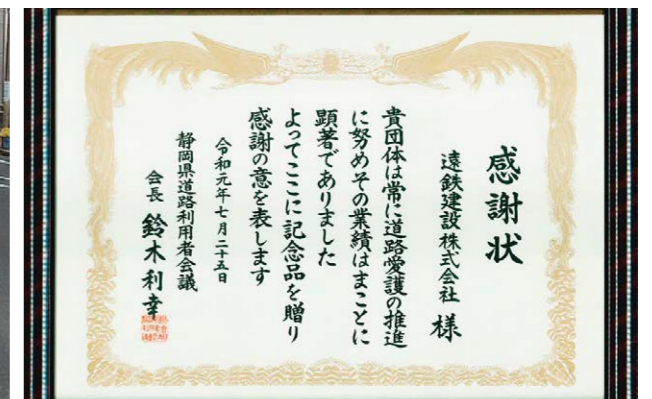 感謝状
遠鉄建設株式会社 様
貴団体は常に道路愛護の推進
に努めその業績はまことに
顕著でありました
よってここに記念品を贈り
感謝の意を表します
令和元年七月二十五日
静岡県道路利用者会議
会長 鈴木利幸